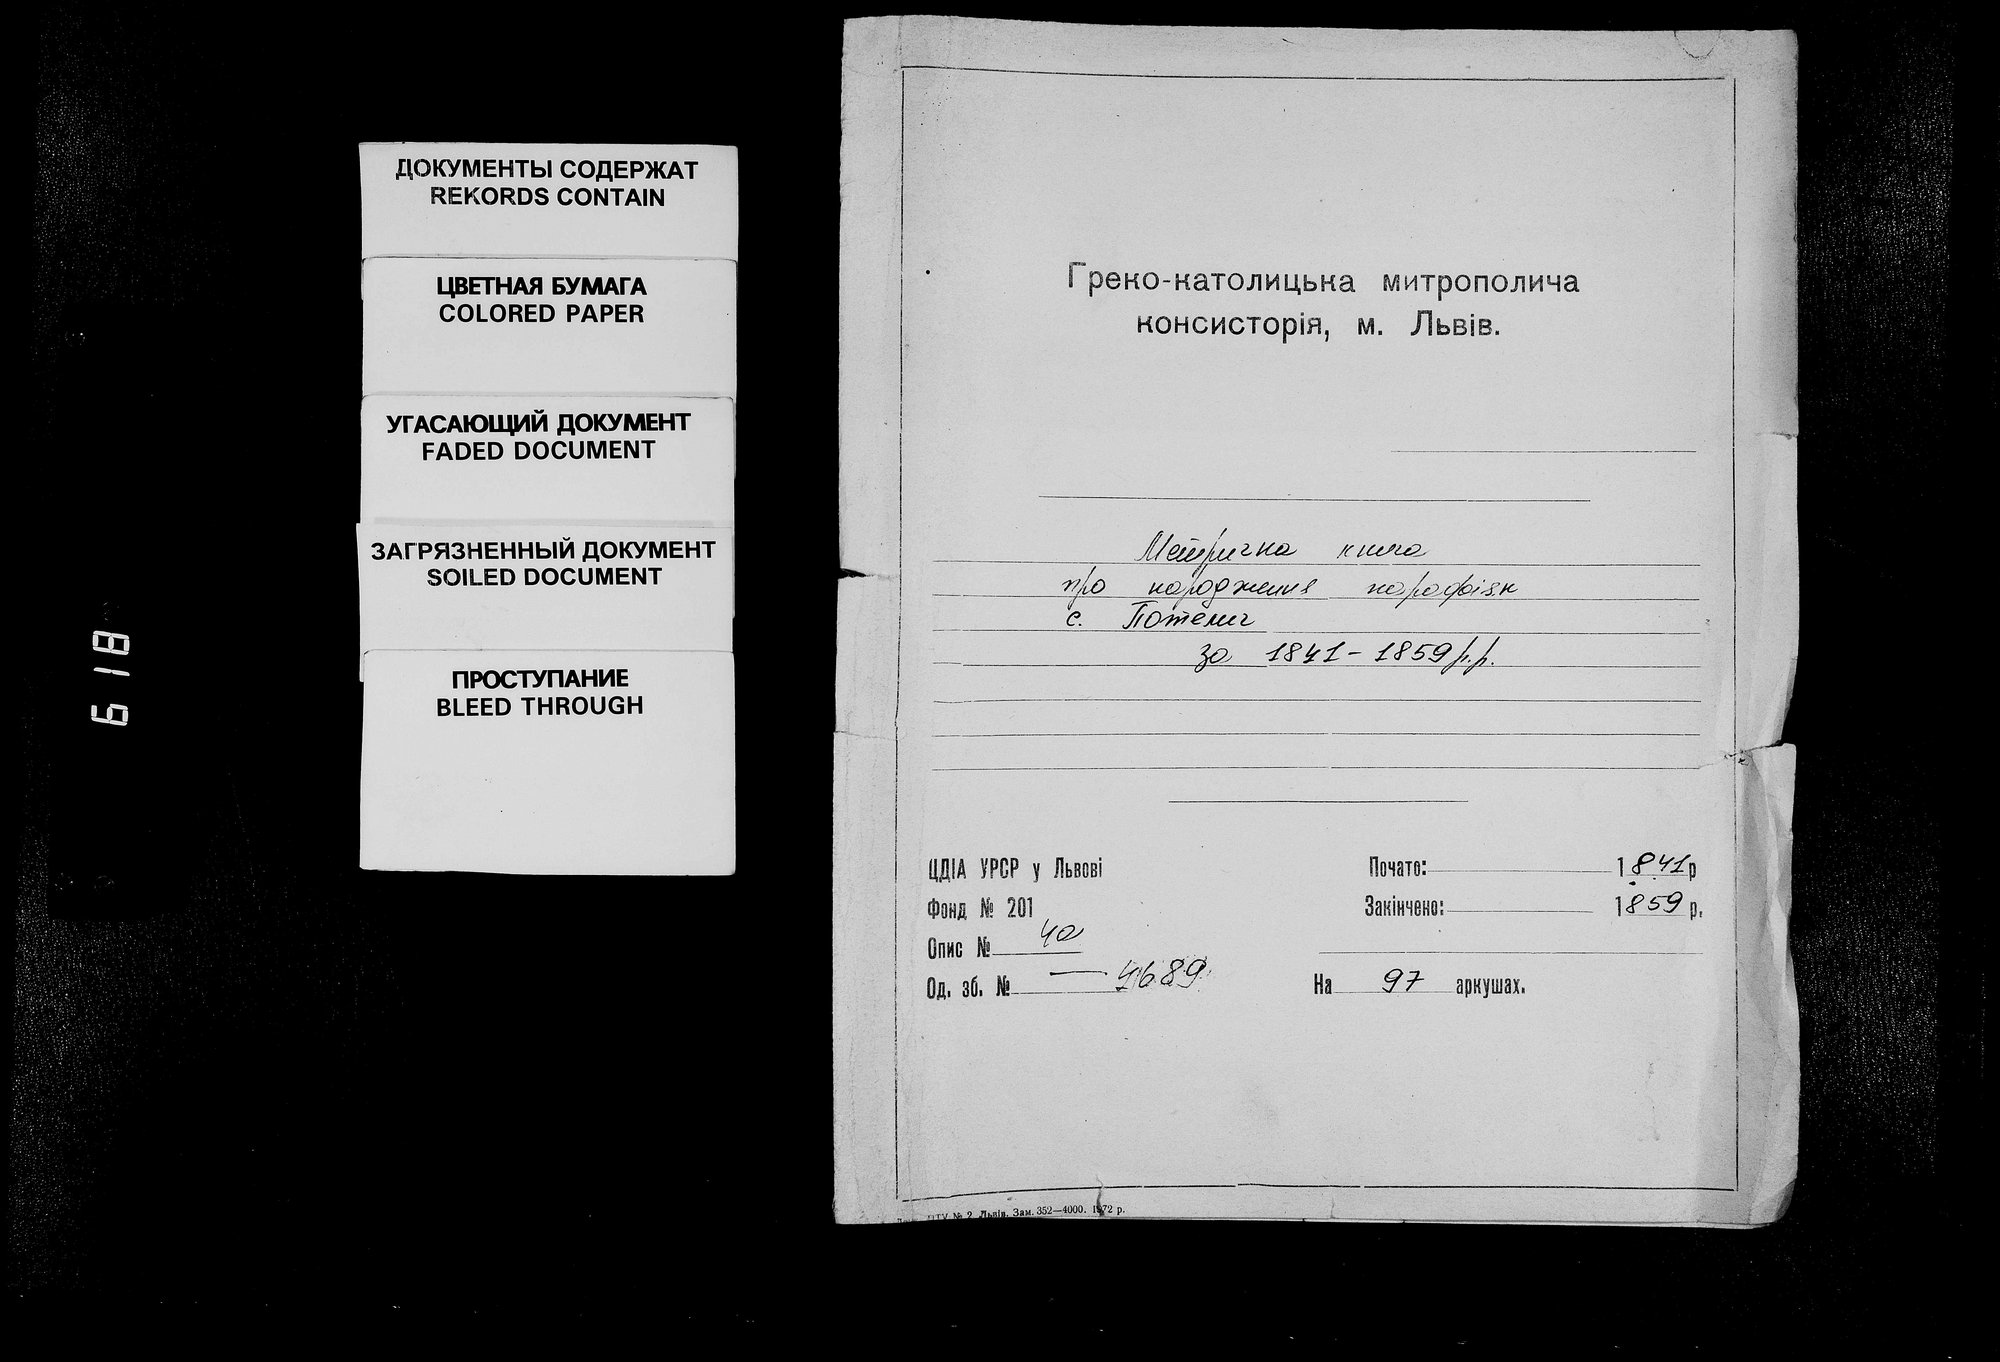 ДОКУМЕНТЫ СОДЕРЖАТ
REKORDS CONTAIN
ЦВЕТНАЯ БУМАГА
COLORED PAPER
УГАСАЮЩИЙ ДОКУМЕНТ
FADED DOCUMENT
ЗАГРЯЗНЕННЫЙ ДОКУМЕНТ
SOILED DOCUMENT
ПРОСТУПАНИЕ
BLEED THROUGH
618
Греко-католицька митрополича
консисторія, м. Львів.
Метрична книга
про народження парафіян
с. Потелич
за 1841-1859 р.р.
ЦДІА УРСР у Львові
Фонд № 201
Опис № 4а
Од. зб. № 4689
Почато: 1841р
Закінчено: 1859 р.
На 97 аркушах.
№ 2 Львів. Зам. 352—4000. 1972 р.